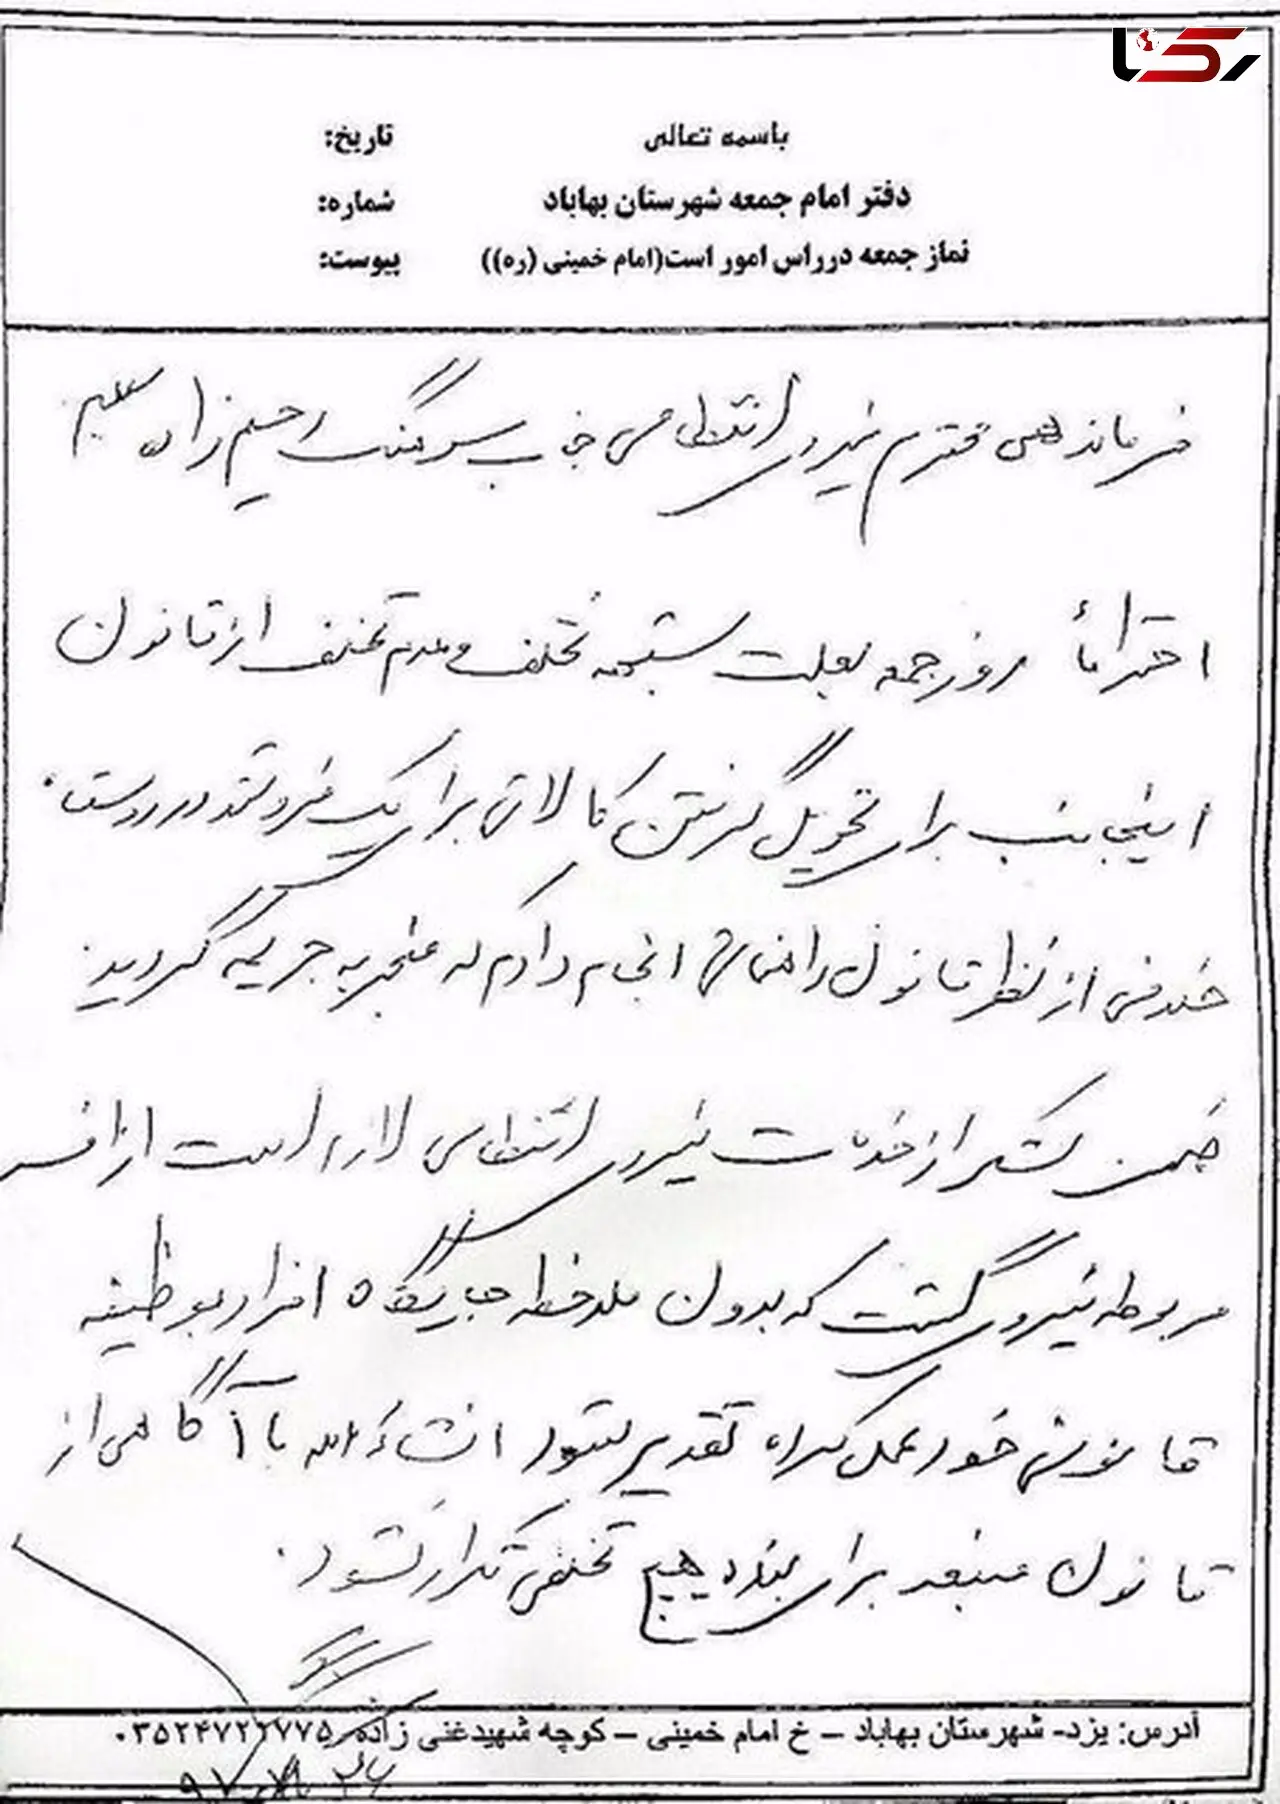 رکنا
باسمه تعالی
تاریخ:
دفتر امام جمعه شهرستان بهاباد
شماره:
نماز جمعه درراس امور است(امام خمینی (ره))
پیوست:
فرماندهی محترم نیروی انتظامی جناب سرهنگ رحیم زاده
احتراماً روز جمعه بعلت شبهه تخلف و عدم تخلف از قانون
اینجانب برای تحویل گرفتن کالائی برای یک فروشنده در روستا
خلافی از نظر قانون راهنمائی انجام دادم که منجر به جریمه گردید
ضمن تشکر از خدمات نیروی انتظامی لازم است از افسر
مربوطه نیروی گشت که بدون ملاحظه جایگاه افراد بوظیفه
قانونی خود عمل کرده تقدیر بشود انشاءالله با آگاهی از
قانون منبعد برای بنده هیچ تخلفی تکرار نشود.
آدرس: یزد- شهرستان بهاباد – خ امام خمینی – کوچه شهیدغنی زاده ۰۳۵۲۴۷۲۲۷۷۵